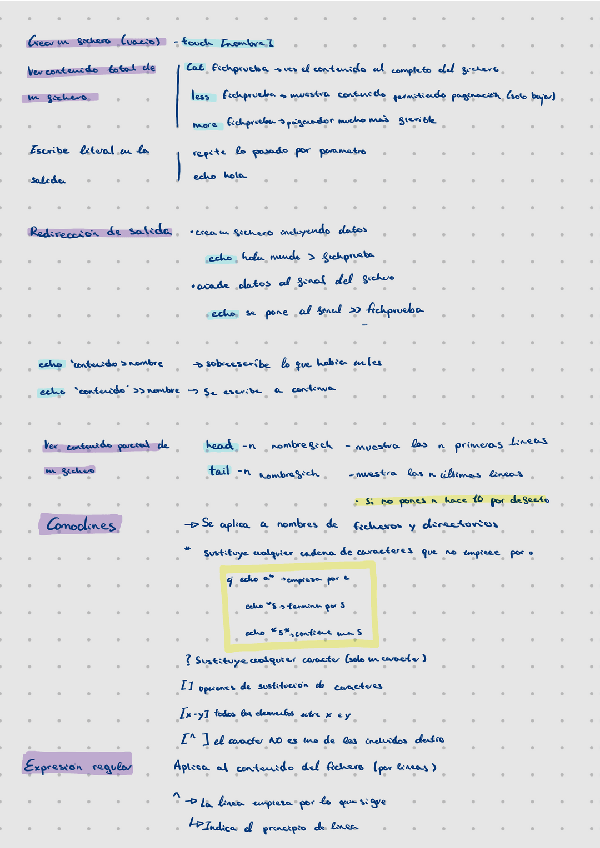 Crear un fichero (vacio) - touch [nombre]
Ver contenido total de un fichero
cat fichprueba → ves el contenido al completo del fichero
less fichprueba → muestra contenido permitiendo paginación (solo bajar)
more fichprueba → paginador mucho más flexible
Escribe literal en la salida
repite lo pasado por parametro
echo hola
Redirección de salida
· crea un fichero incluyendo datos
echo hola mundo > fichprueba
· añade datos al final del fichero
echo se pone al final >> fichprueba
echo 'contenido > nombre → sobreescribe lo que habia antes
echo 'contenido' >> nombre → Se escribe a continua
Ver contenido parcial de un fichero
head -n nombrefich - muestra las n primeras lineas
tail -n nombrefich - muestra las n últimas lineas
· Si no pones n hace 10 por defecto
Comodines
→ Se aplica a nombres de ficheros y directorios
* sustituye cualquier cadena de caracteres que no empiece por .
echo a* → empieza por a
echo *s → termina por s
echo *s* → contiene una s
? Sustituye cualquier caracter (solo un caracter)
[ ] opciones de sustitución de caracteres
[x-y] todos los elementos entre x e y
[^ ] el caracter NO es uno de los incluidos dentro
Expresión regular
Aplica al contenido del fichero (por lineas)
^ → La linea empieza por lo que sigue
↳ Indica el principio de linea